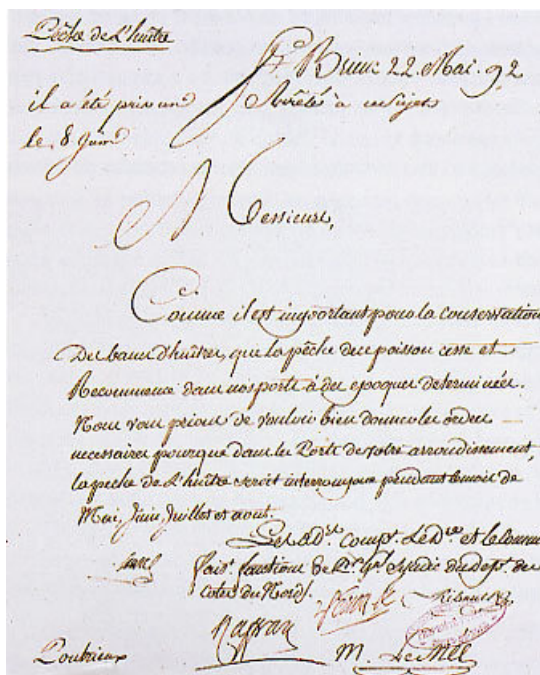 Pêche de L'huitre
St. Brieuc 22. Mai. 92
il a été pris un Arrêté à ce sujet
le 8 Juin
Messieurs,
Comme il est important pour la conservation
Des bancs d'huitres, que la pêche de ce poisson cesse et
Recommence dans nos ports à des epoques determinées.
Nous vous prions de vouloir bien donner les ordres
necessaires pour que dans les Ports de votre arrondissement,
la peche de L'huitre soit interrompue pendant le mois de
Mai, Juin, Juillet et aout.
Les ad. comp. Le D. et le Comm
fais. fonctions de P. g. Syndic du dep. des
Cotes du Nord.
Pontrieux